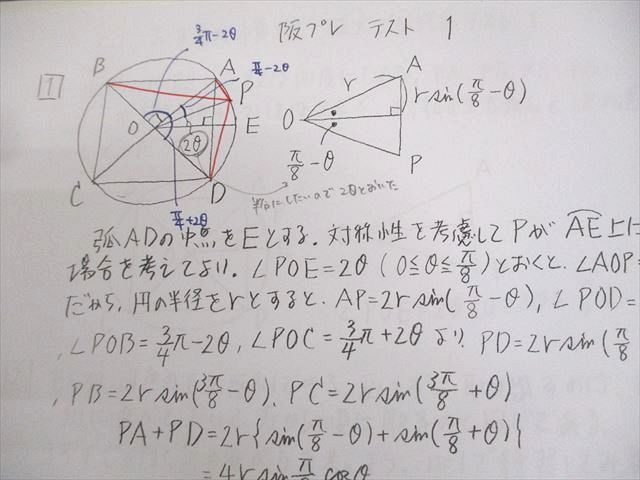 阪プレ テスト 1
1
3/4π-2θ
π/4-2θ
B
A
P
O
E
2θ
C
D
π/4+2θ
半分にしたいので2θとおいた
A
r
r sin(π/8-θ)
O
π/8-θ
P
弧ADの中点をEとする。対称性を考慮してPが⌒AE上に
場合を考えてよい。∠POE=2θ (0≦θ≦π/8)とおくと、∠AOP=
だから、円の半径をrとすると、AP=2r sin(π/8-θ), ∠POD=
, ∠POB=3/4π-2θ, ∠POC=3/4π+2θ より PD=2r sin(π/8
, PB=2r sin(3π/8-θ), PC=2r sin(3π/8+θ)
PA+PD=2r{sin(π/8-θ)+sin(π/8+θ)}
=4r sin π/8 cosθ